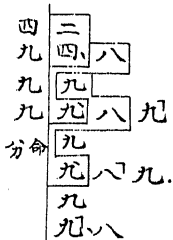 四 二
九 四、 八
九 九
九 九 八 九
分命 九
九 八 九.
九
九、八